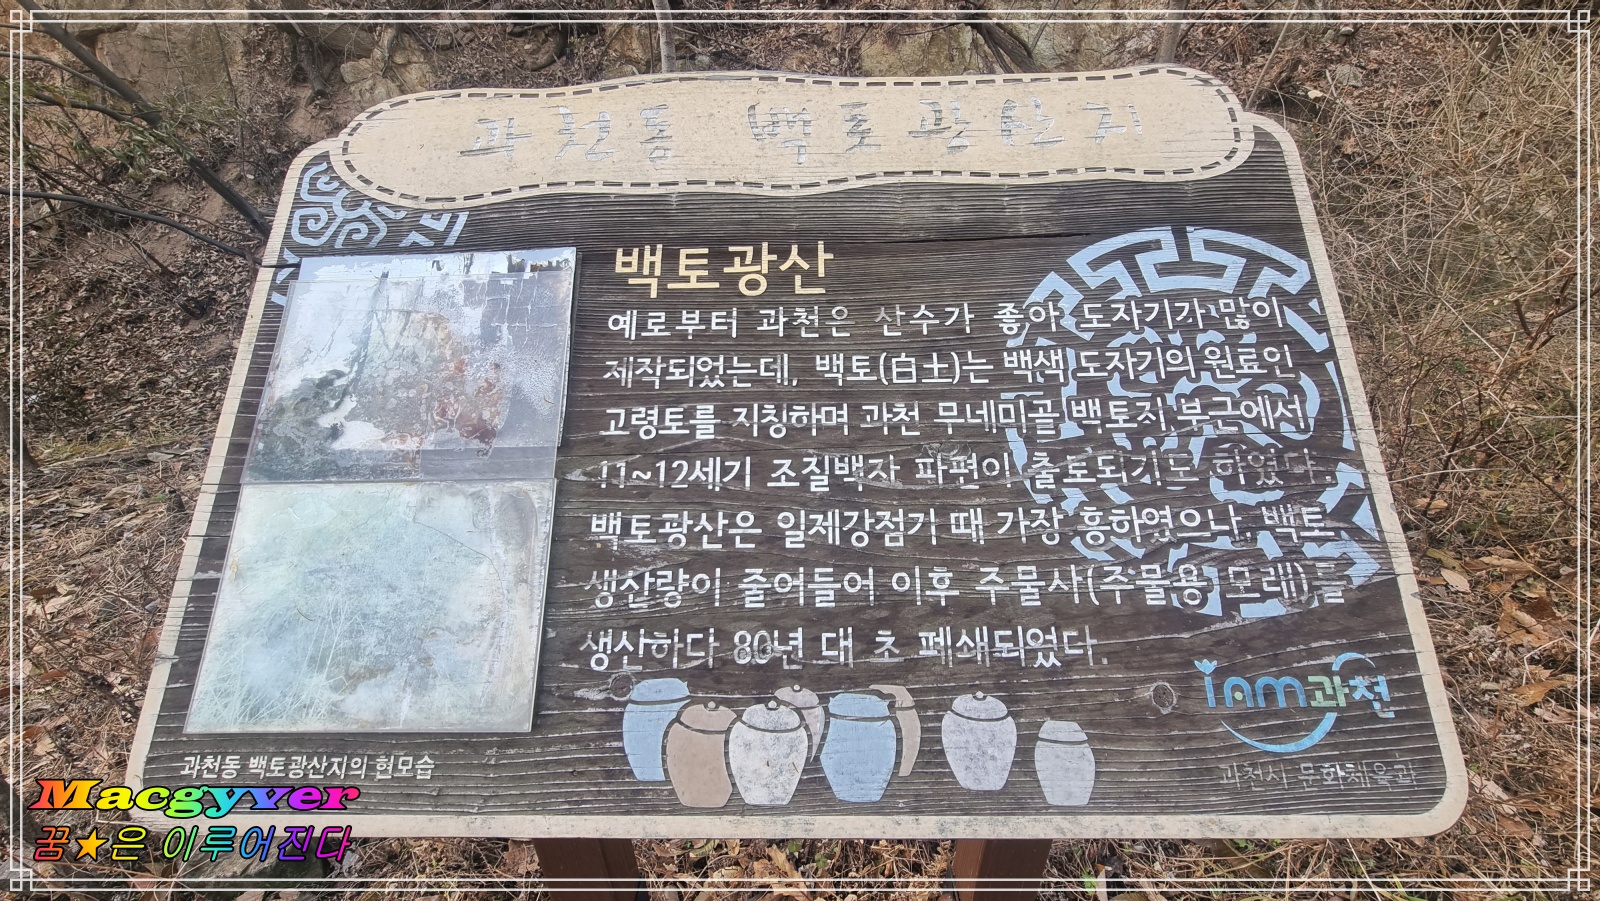 과천동 백토광산지
백토광산
예로부터 과천은 산수가 좋아 도자기가 많이
제작되었는데, 백토(白土)는 백색 도자기의 원료인
고령토를 지칭하며 과천 무네미골 백토지 부근에서
11~12세기 조질백자 파편이 출토되기도 하였다.
백토광산은 일제강점기 때 가장 흥하였으나, 백토
생산량이 줄어들어 이후 주물사(주물용 모래)를
생산하다 80년 대 초 폐쇄되었다.
iAM과천
과천동 백토광산지의 현모습
과천시 문화체육과
Macgyver
꿈★은 이루어진다